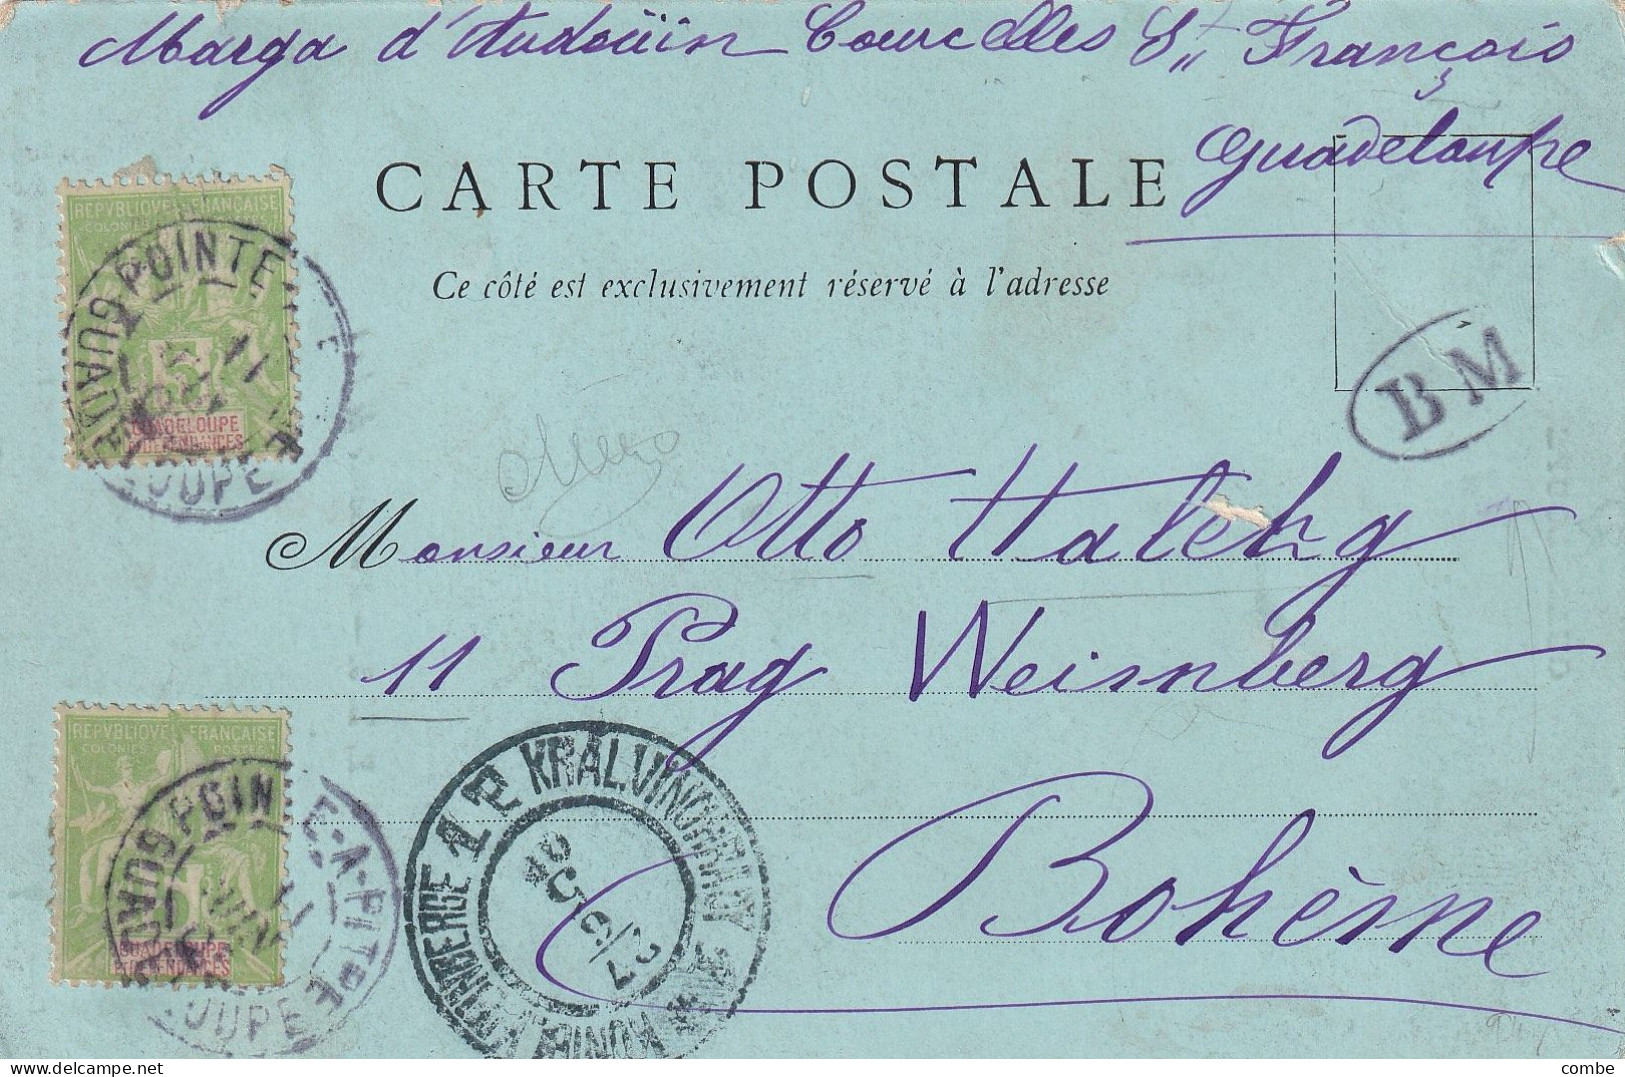 Marga d'Audoüin Courcelles St François
Guadeloupe
CARTE POSTALE
Ce côté est exclusivement réservé à l'adresse
REPVBLIQVE FRANÇAISE
COLONIES POSTES
5
GUADELOUPE
ET DEPENDANCES
POINTE
GUADELOUPE
BM
Monsieur Otto
11 Prag Weinberg
Bohème
REPVBLIQVE FRANÇAISE
COLONIES POSTES
GUADELOUPE
ET DEPENDANCES
POINTE-A-PITRE
KRÁL. VINOHRADY
1
combe